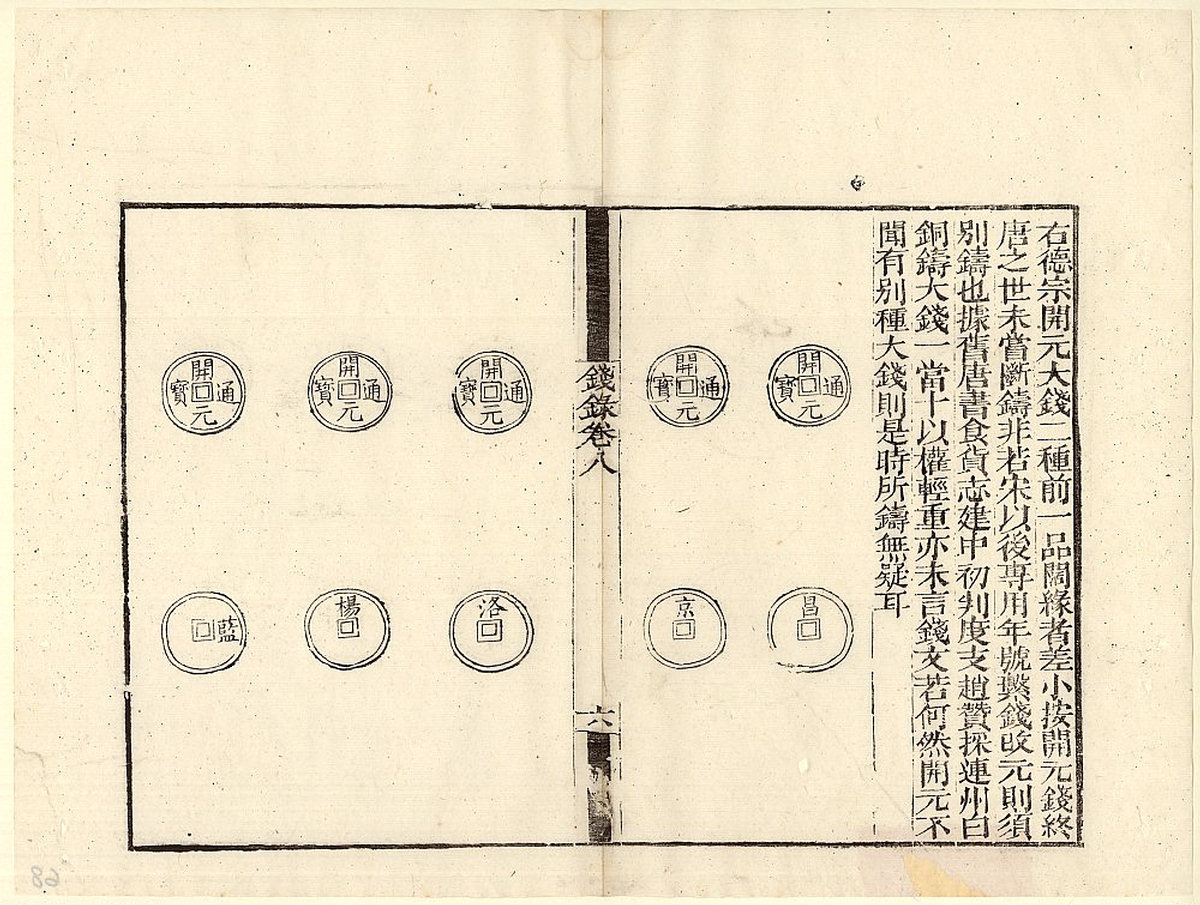 右德宗開元大錢二種前一品闊緣者差小按開元錢終
唐之世未嘗斷鑄非若宋以後專用年號繫錢改元則須
別鑄也據舊唐書食貨志建中初判度支趙贊採連州白
銅鑄大錢一當十以權輕重亦未言錢文若何然開元不
聞有別種大錢則是時所鑄無疑耳
開元通寶
昌
開元通寶
京
錢錄卷八
六
開元通寶
洛
開元通寶
楊
開元通寶
藍
68